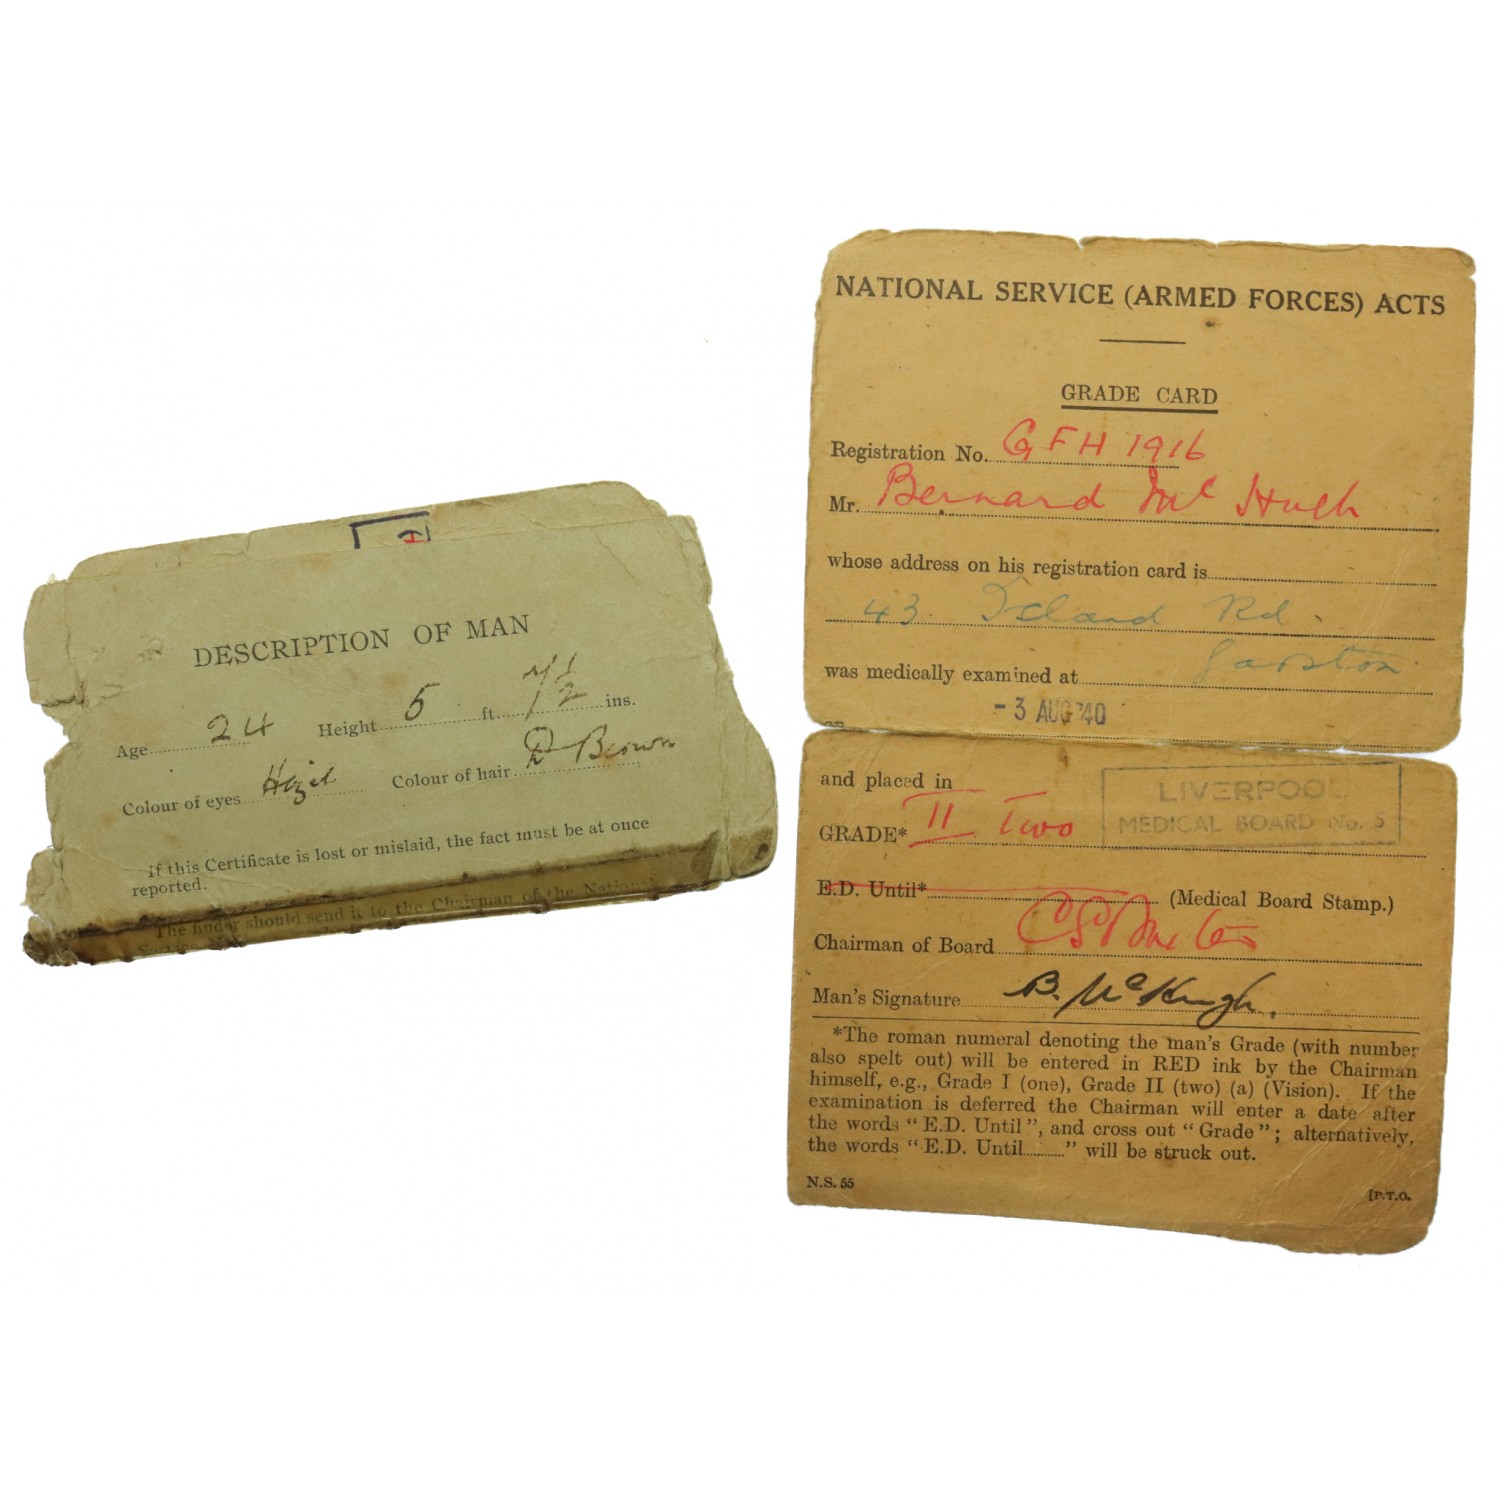 DESCRIPTION OF MAN
Age 24 Height 5 ft. 1/2 ins.
Colour of eyes Hazel Colour of hair D Brown
If this Certificate is lost or mislaid, the fact must be at once
reported.
The finder should send it to the Chairman of the National
NATIONAL SERVICE (ARMED FORCES) ACTS
GRADE CARD
Registration No. GFH 1916
Mr. Bernard Mc Hugh
whose address on his registration card is
43. Island Rd.
Garston
was medically examined at
- 3 AUG '40
on
and placed in
LIVERPOOL
MEDICAL BOARD No. 5
GRADE* II Two
E.D. Until* (Medical Board Stamp.)
Chairman of Board
Man's Signature B. McHugh.
*The roman numeral denoting the man's Grade (with number
also spelt out) will be entered in RED ink by the Chairman
himself, e.g., Grade I (one), Grade II (two) (a) (Vision). If the
examination is deferred the Chairman will enter a date after
the words "E.D. Until", and cross out "Grade"; alternatively,
the words "E.D. Until........." will be struck out.
N.S. 55 [P.T.O.